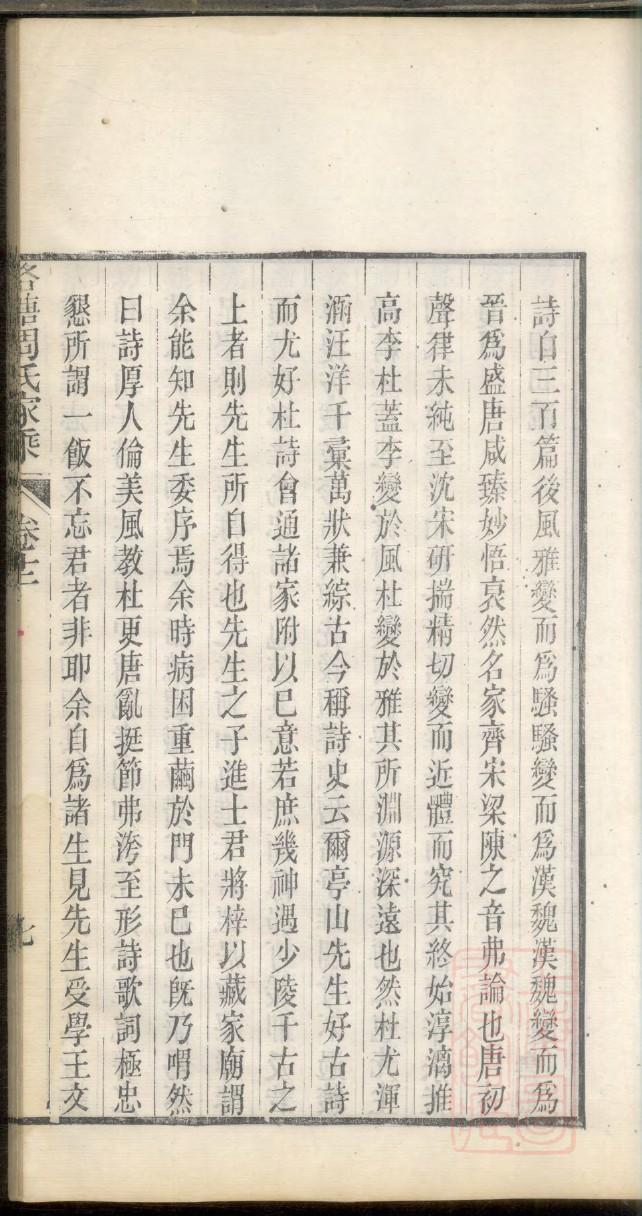 詩自三百篇後風雅變而爲騷騷變而爲漢魏漢魏變而爲
晉爲盛唐咸臻妙悟裒然名家齊宋梁陳之音弗論也唐初
聲律未純至沈宋研揣精切變而近體而究其終始淳漓推
高李杜蓋李變於風杜變於雅其所淵源深遠也然杜尤渾
涵汪洋千彙萬狀兼綜古今稱詩史云爾亭山先生好古詩
而尤好杜詩會通諸家附以已意若庶幾神遇少陵千古之
上者則先生所自得也先生之子進士君將梓以藏家廟謂
余能知先生委序焉余時病困重繭於門未已也旣乃喟然
曰詩厚人倫美風教杜更唐亂挺節弗洿至形詩歌詞極忠
懇所謂一飯不忘君者非耶余自爲諸生見先生受學王文
周氏家乘
七